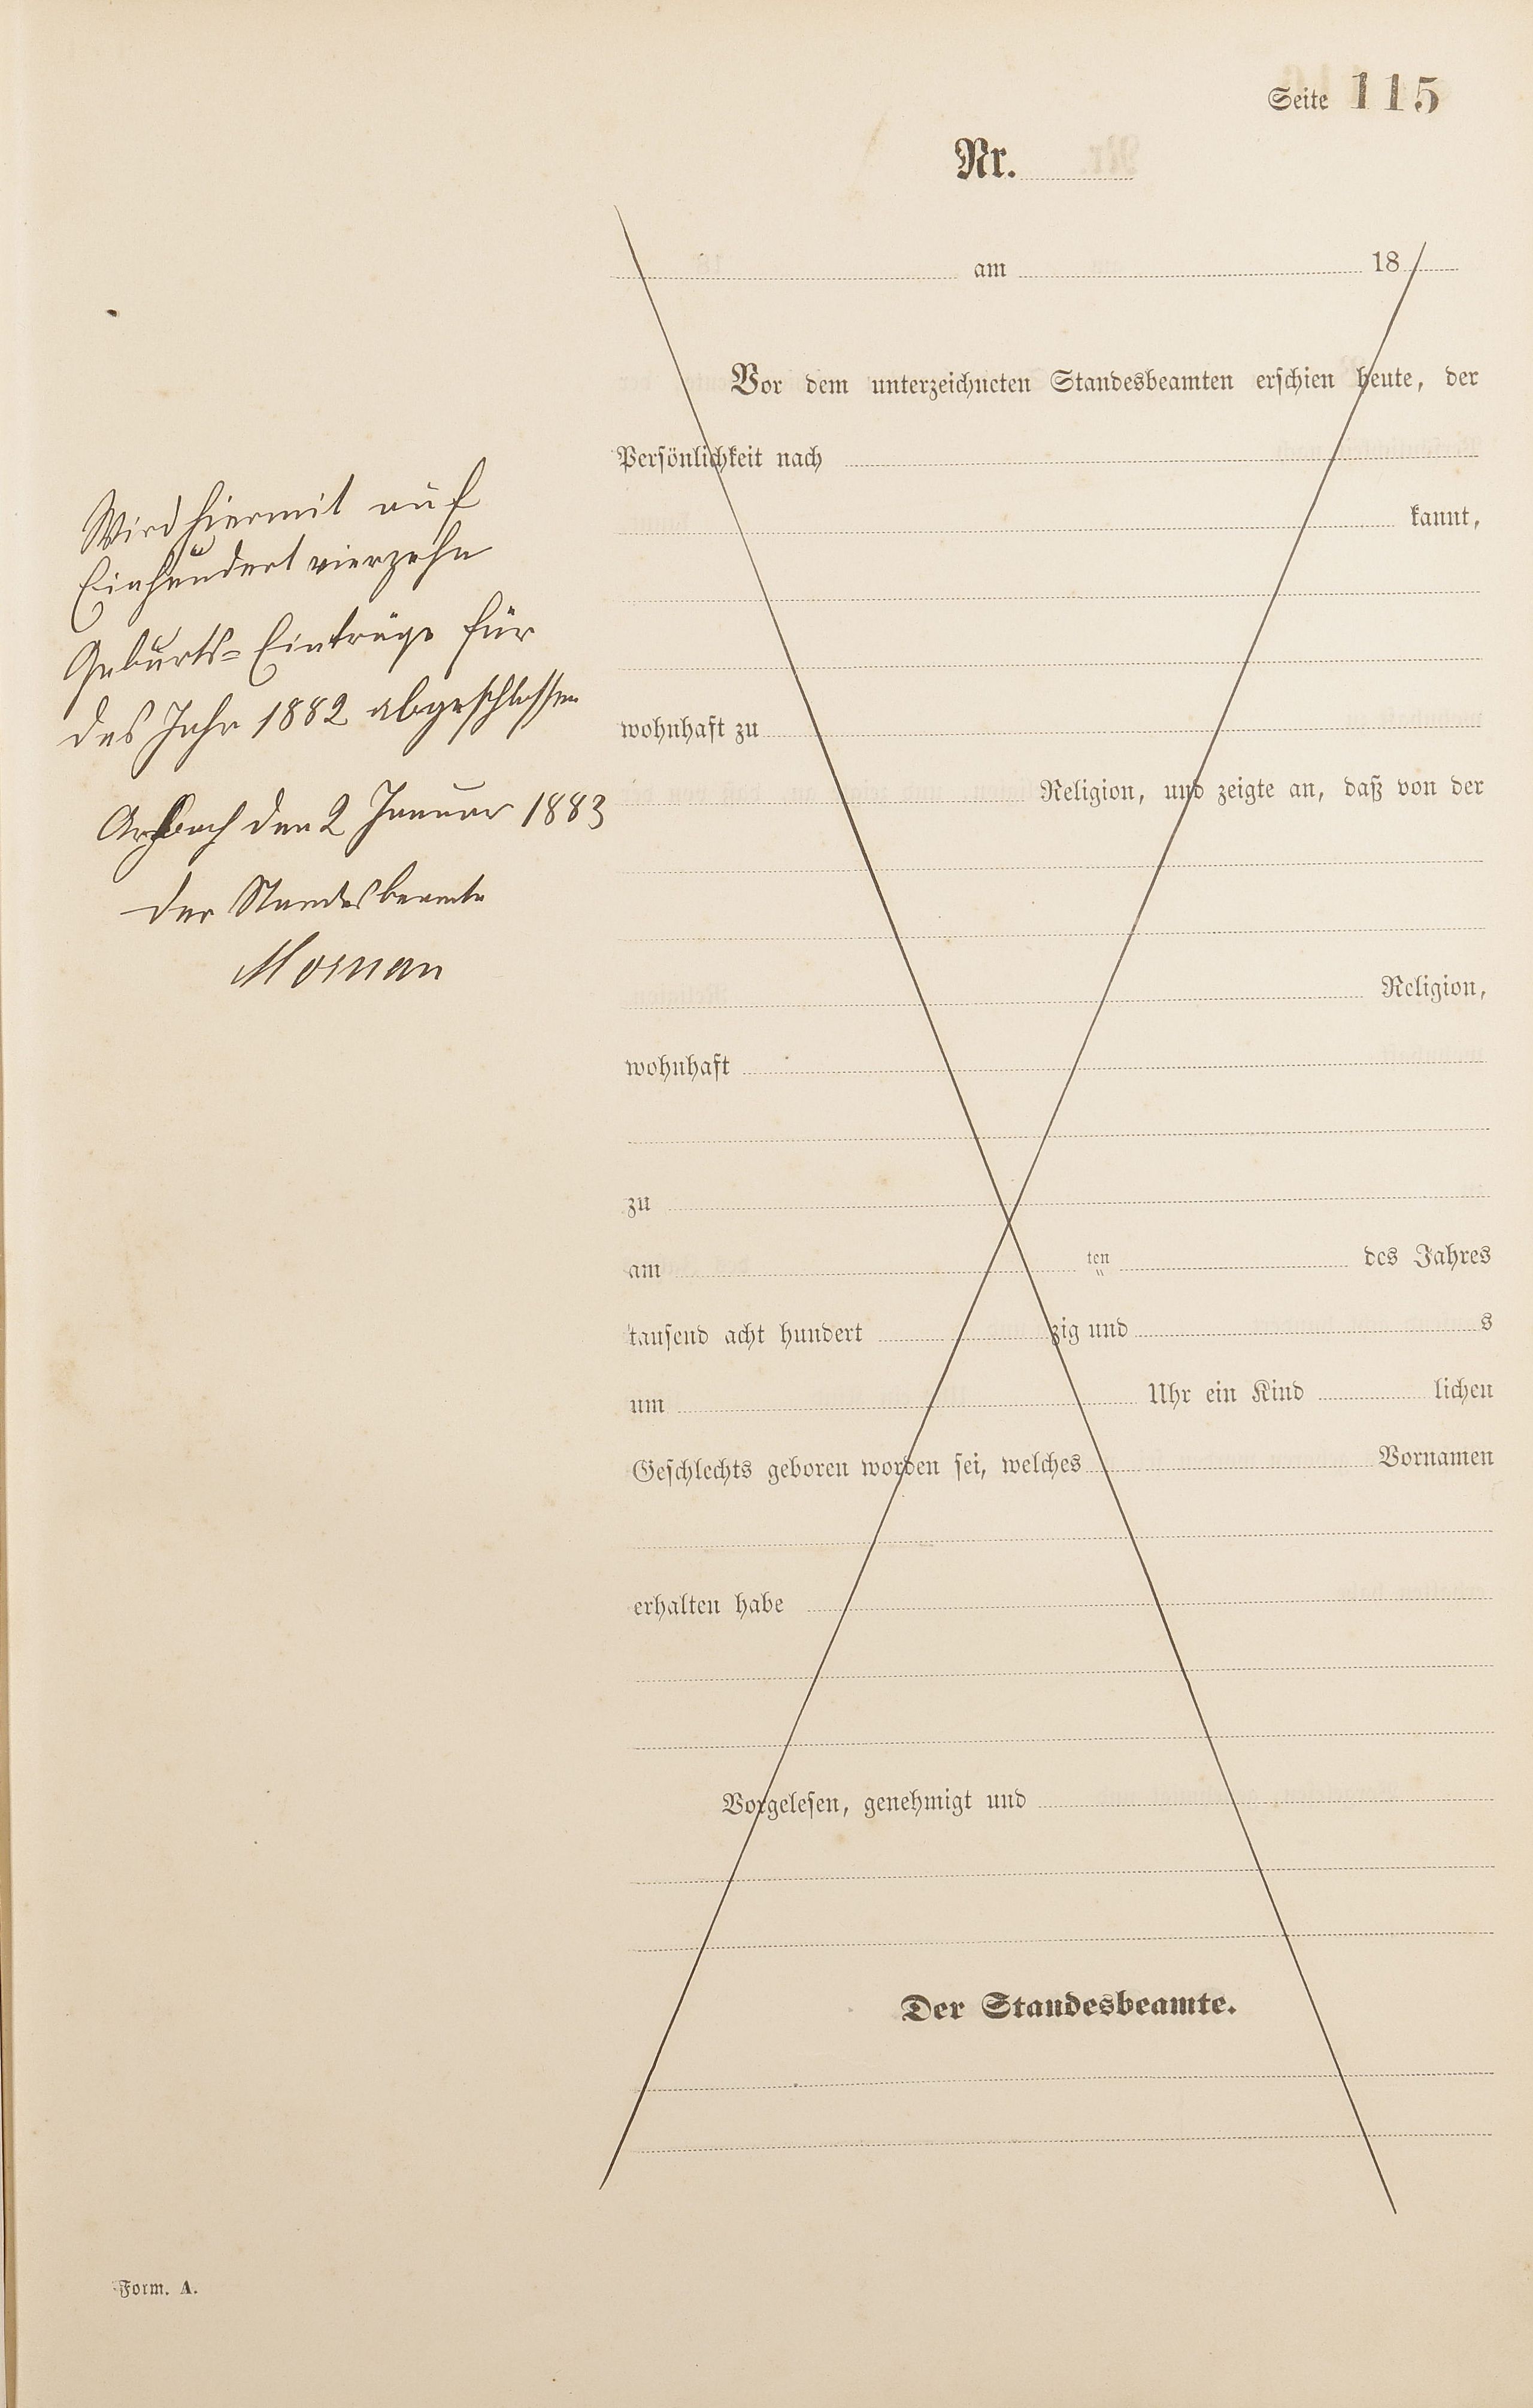 Seite 115
Nr.
am 18
Vor dem unterzeichneten Standesbeamten erschien heute, der
Persönlichkeit nach
kannt,
wohnhaft zu
Religion, und zeigte an, daß von der
Religion,
wohnhaft
zu
am ten des Jahres
tausend acht hundert zig und s
um Uhr ein Kind lichen
Geschlechts geboren worden sei, welches Vornamen
erhalten habe
Vorgelesen, genehmigt und
Der Standesbeamte.
Wird hiermit auf
Einhundert vierzehn
Geburts-Einträge für
das Jahr 1882 abgeschlossen
den 2 Januar 1883
Der Standesbeamte
Form. A.